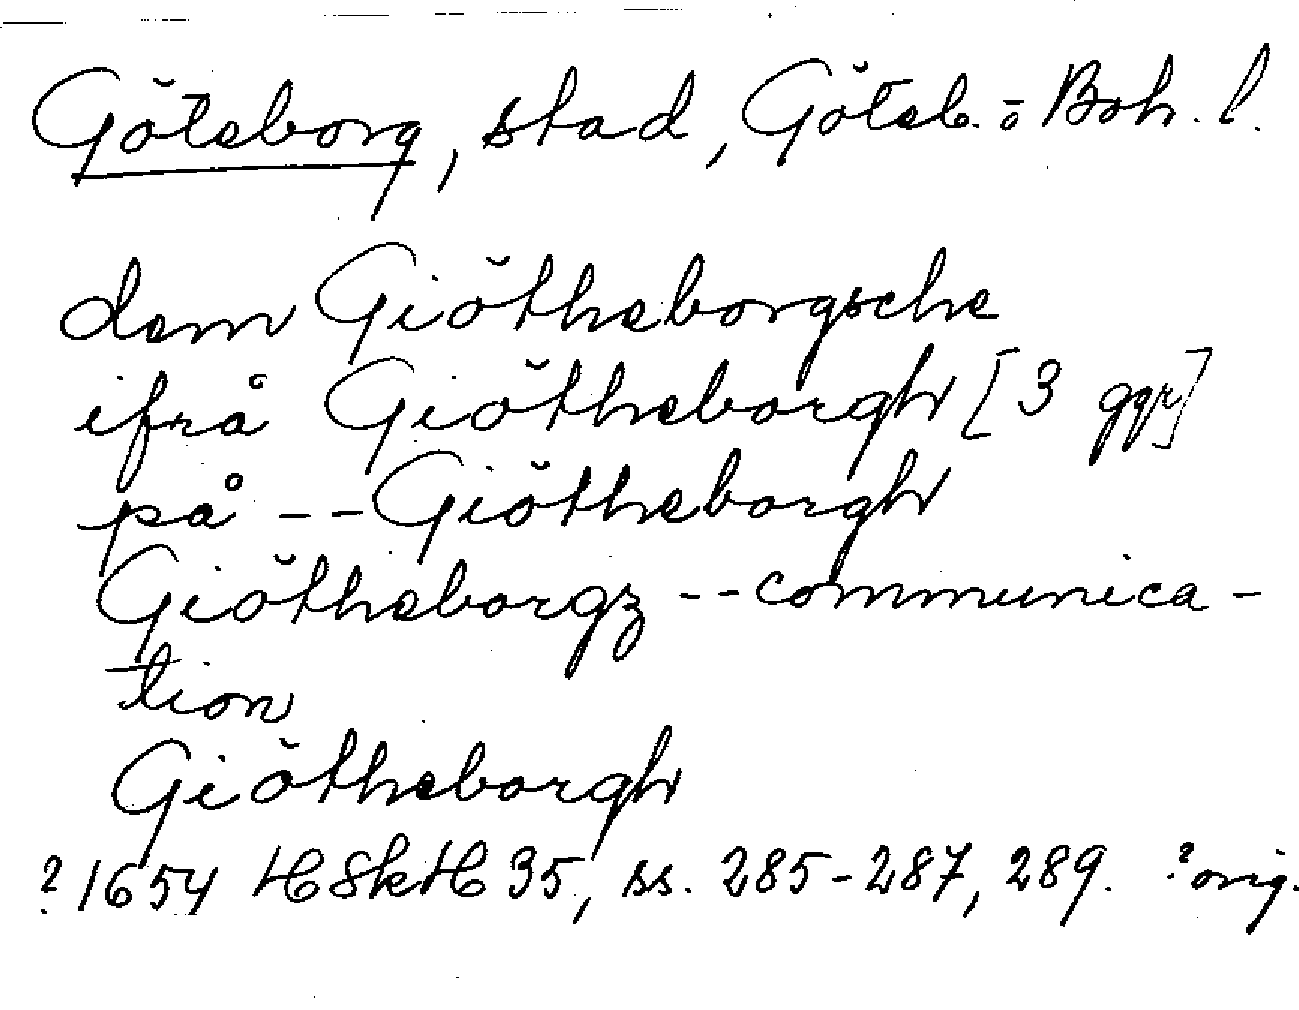 Göteborg, stad, Göteb. o Boh. l.
dem Giötheborgsche
ifrå Giötheborgh [3 ggr]
på -- Giötheborgh
Giötheborgz -- communica-
tion
Giötheborgh
? 1654 HSkH 35, ss. 285-287, 289. ? orig.